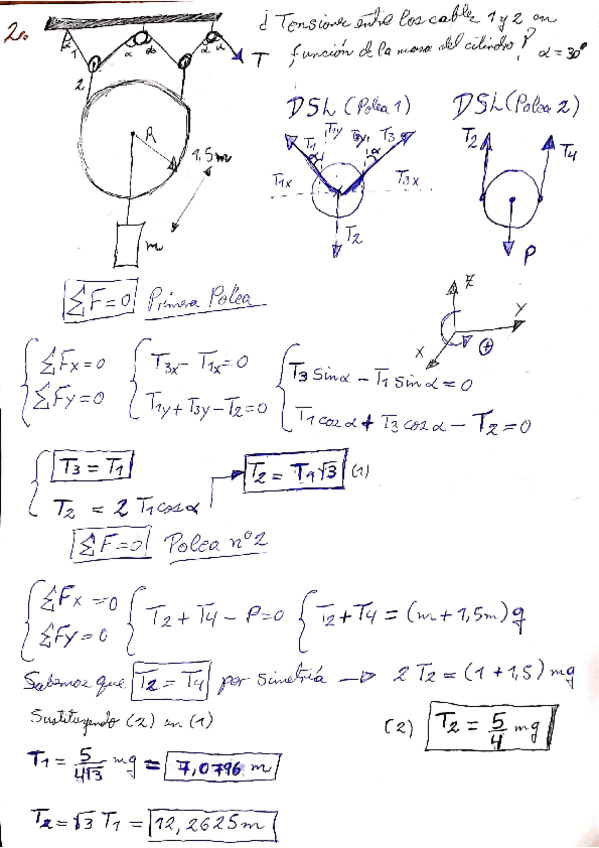 2.
¿ Tensiones entre los cables 1 y 2 en
función de la masa del cilindro ? α = 30º
1 α α α α T
2
R
1,5m
m
DSL (Polea 1) DSL (Polea 2)
T1 T1y T3y T3 α α T1x T3x T2
T2 T4 P
ΣF=0 Primera Polea
Z Y X ⊕
ΣFx=0 T3x - T1x=0 T3 sin α - T1 sin α = 0
ΣFy=0 T1y + T3y - T2=0 T1 cos α + T3 cos α - T2 = 0
T3 = T1 T2 = T1 √3 (1)
T2 = 2 T1 cos α
ΣF=0 Polea nº2
ΣFx = 0 T2 + T4 - P=0 T2 + T4 = (m + 1,5m) g
ΣFy = 0
Sabemos que T2 = T4 por simetría → 2 T2 = (1 + 1,5) mg
Sustituyendo (2) en (1) (2) T2 = 5/4 mg
T1 = 5/4√3 mg = 7,0796 m
T2 = √3 T1 = 12,2625 m